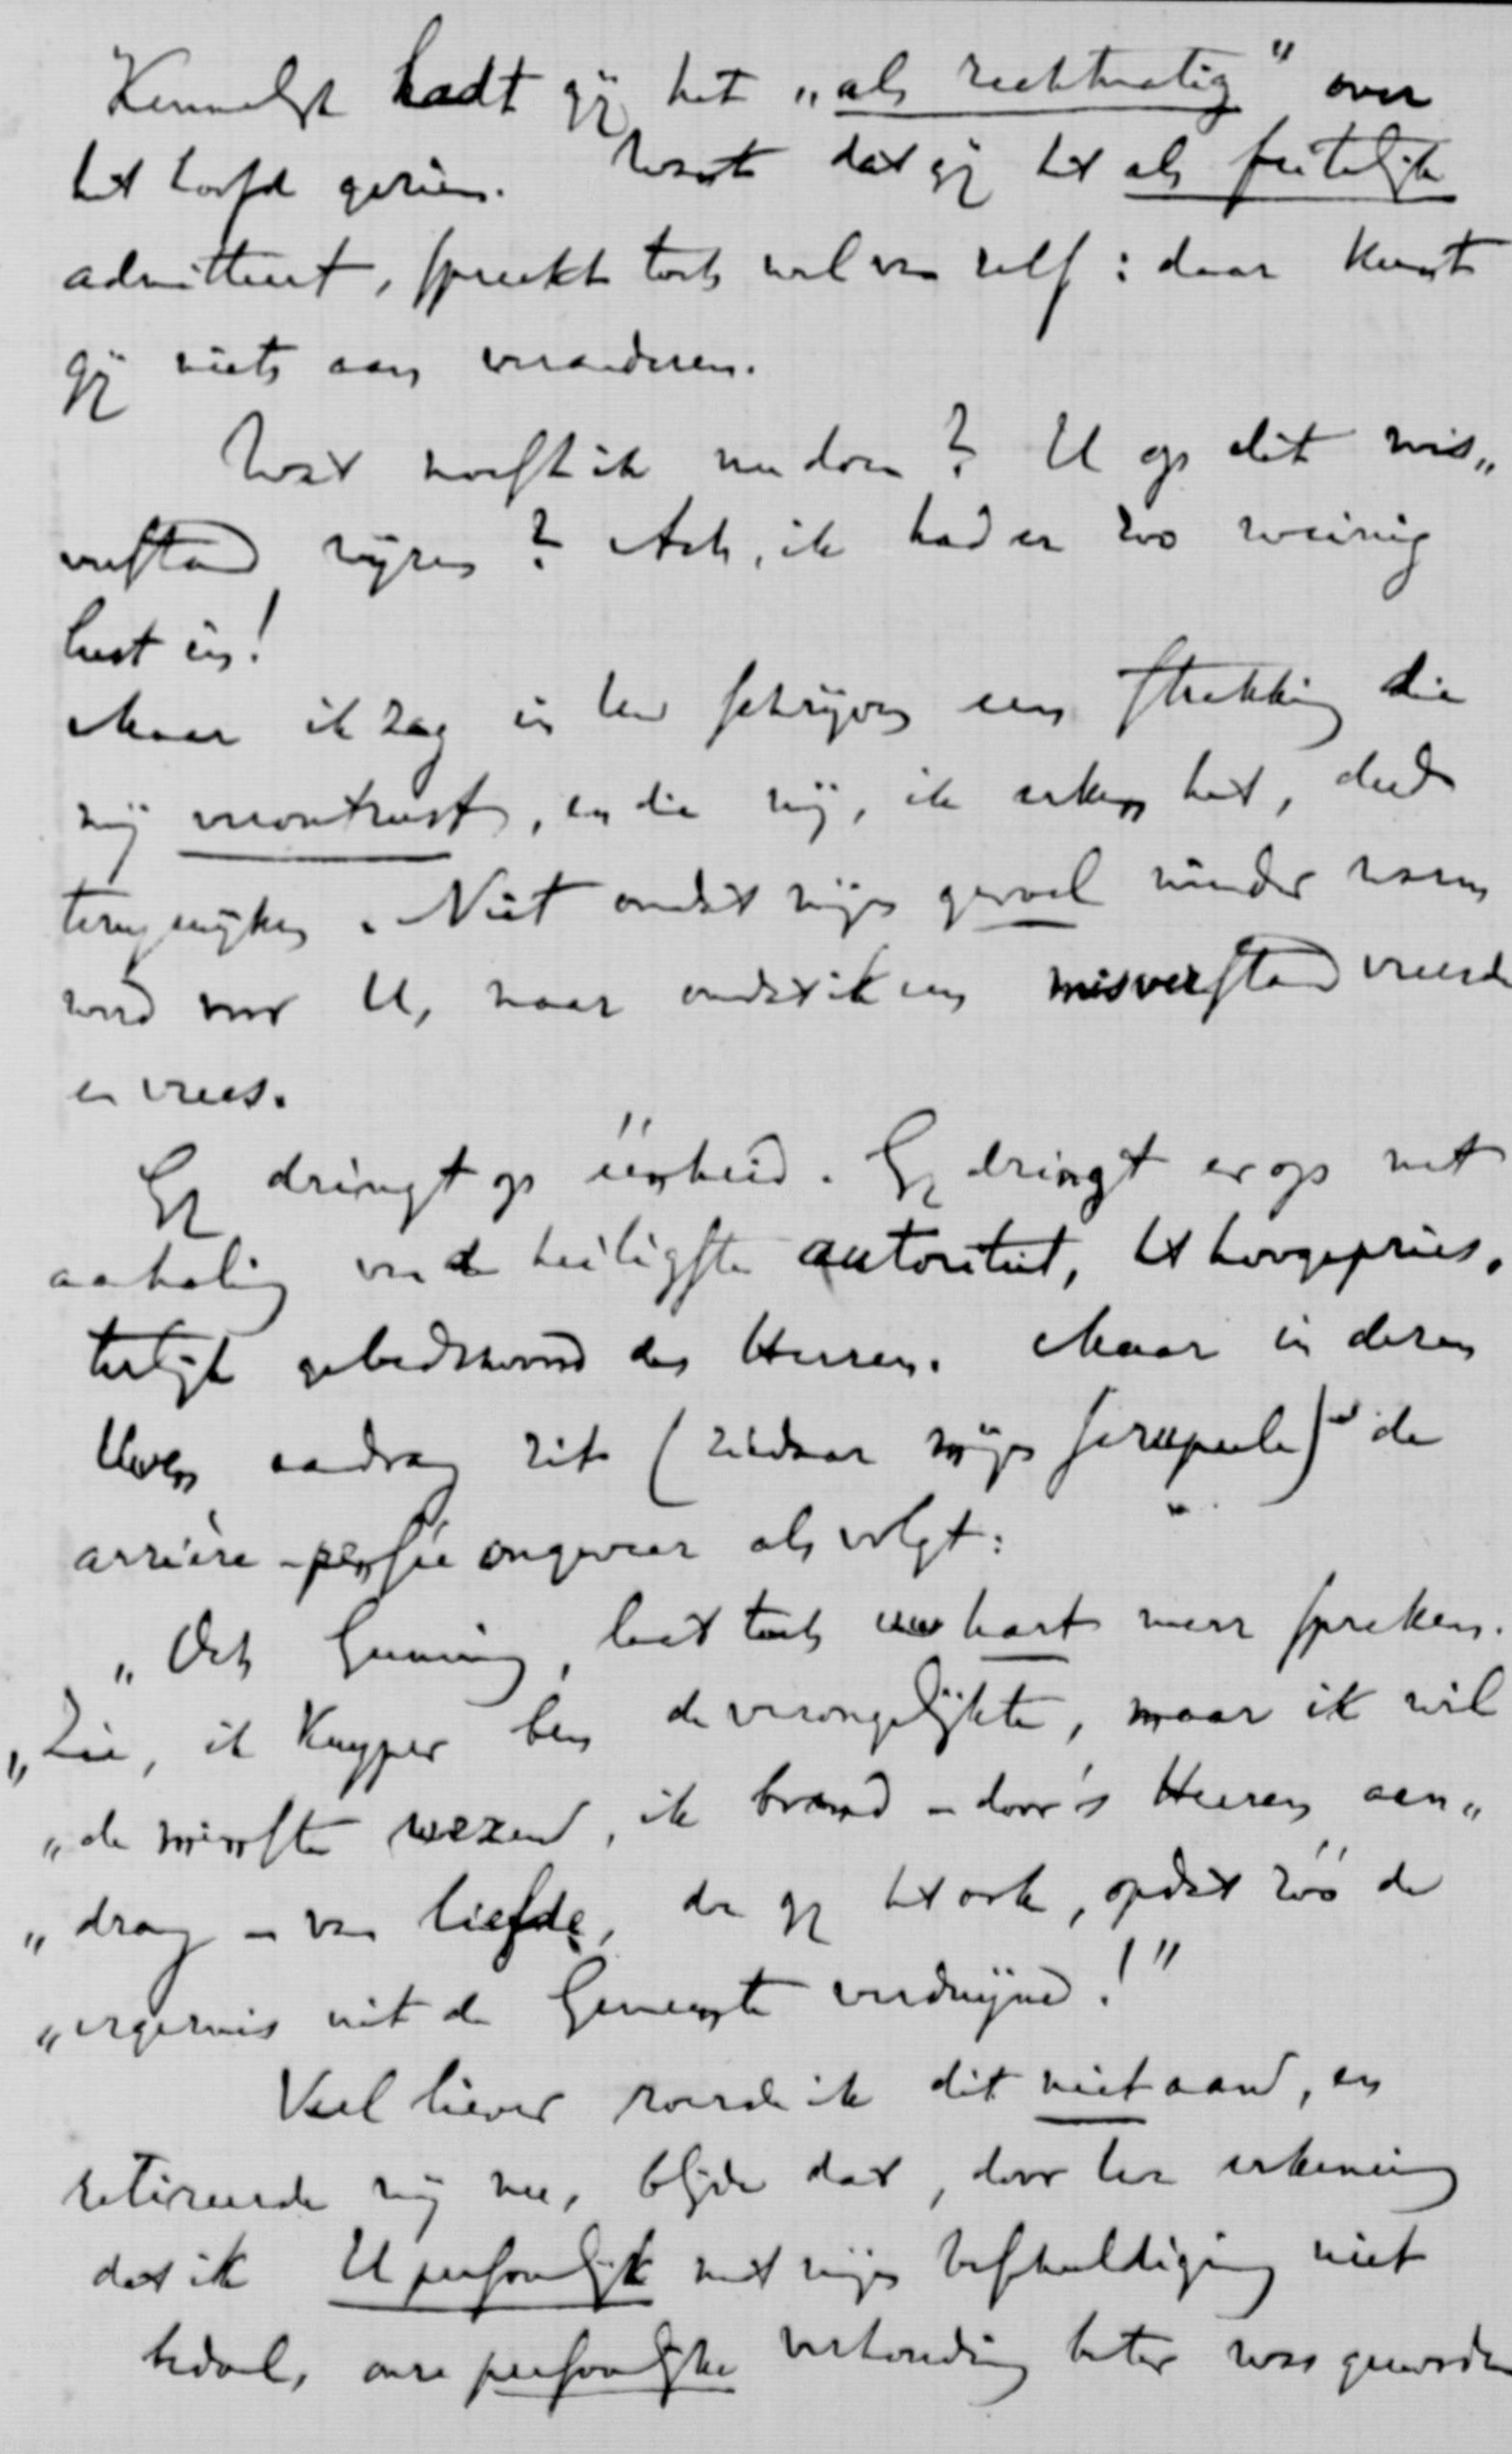 Kennelijk hadt gij het „als rechtmatig" over
het hoofd gezien. Want dat gij het als feitelijk
admitteert, spreekt toch wel van zelf: daar kunt
gij niets aan veranderen.
Wat moest ik nu doen? U op dit mis„
verstand wijzen? Ach, ik had er zoo weinig
lust in!
Maar ik zag in Uw schrijven een strekking die
mij verontrust, en die mij, ik erken het, deed
terugwijken. Niet omdat mijn gevoel minder warm
werd voor U, maar omdat ik een misverstand vreesde
en vrees.
Gij dringt op éénheid. Gij dringt er op met
aanhaling van de heiligste autoriteit, het hoogepries„
terlijk gebedswoord des Heeren. Maar in dezen
Uwen aandrang zit (ziedaar mijn scrupule) de
arrière-pensée ongeveer als volgt:
„Och Gunning, laat toch uw hart meer spreken.
„Zie, ik Kuyper ben de verongelijkte, maar ik wil
„de minste wezen, ik brand – door 's Heeren aan„
„drang – van liefde, doe gij het ook, opdat zóó de
„ergernis uit de Gemeente verdwijne!"
Veel liever roerde ik dit niet aan, en
retireerde mij nu, blijde dat, door Uw erkenning
dat ik U persoonlijk met mijn beschuldiging niet
bedoel, onze persoonlijke verhouding beter was geworden